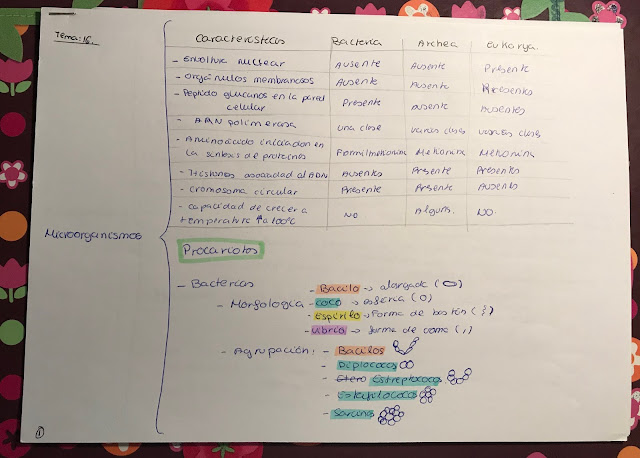 Tema: 16.
Características Bacteria Archea Eukarya.
- Envoltura nuclear Ausente Ausente Presente
- Orgánulos membranosos Ausente Ausente Presentes
- Peptido glucanos en la pared celular Presente ausente Ausentes
- ARN polimerasa una clase varias clases varias clases
- Aminoácido iniciador en la síntesis de proteínas Formilmetionina Metionina Metionina
- Histonas asociadas al ADN Ausentes Presente Presentes
- Cromosoma circular Presente Presente Ausente
- capacidad de crecer a temperatura ↑ a 100°C NO Alguns. NO.
Microorganismos
Procariotas
- Bacterias
- Morfología
- Bacilo → alargada
- coco → esférica
- Espirilo → Forma de bastón
- vibrio → forma de coma (,)
- Agrupación:
- Bacilos
- Diplococos
- Etero Estreptococos
- Estafilococos
- Sarcinas
1